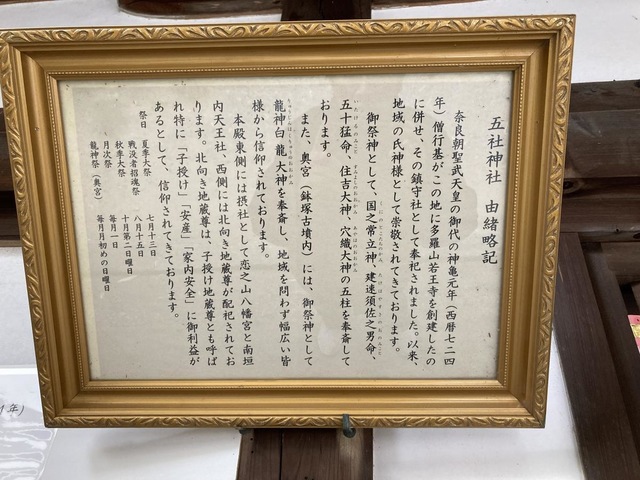 五社神社　由緒略記
奈良朝聖武天皇の御代の神亀元年（西暦七二四
年）僧行基がこの地に多羅山若王寺を創建したの
に併せ、その鎮守社として奉祀されました。以来、
地域の氏神様として崇敬されてきております。
御祭神として、国之常立神、建速須佐之男命、
五十猛命、住吉大神、穴織大神の五柱を奉斎して
おります。
また、奥宮（鉢塚古墳内）には、御祭神として
龍神白龍大神を奉斎し、地域を問わず幅広い皆
様から信仰されております。
本殿東側には摂社として恋之山八幡宮と南垣
内天王社、西側には北向き地蔵尊が配祀されてお
ります。北向き地蔵尊は、子授け地蔵尊とも呼ば
れ特に「子授け」「安産」「家内安全」に御利益が
あるとして、信仰されてきております。
祭日　夏季大祭　七月十三日
戦没者招魂祭　八月十五日
秋季大祭　十月第二日曜日
月次祭　毎月一日
龍神祭（奥宮）　毎月月初めの日曜日
年）